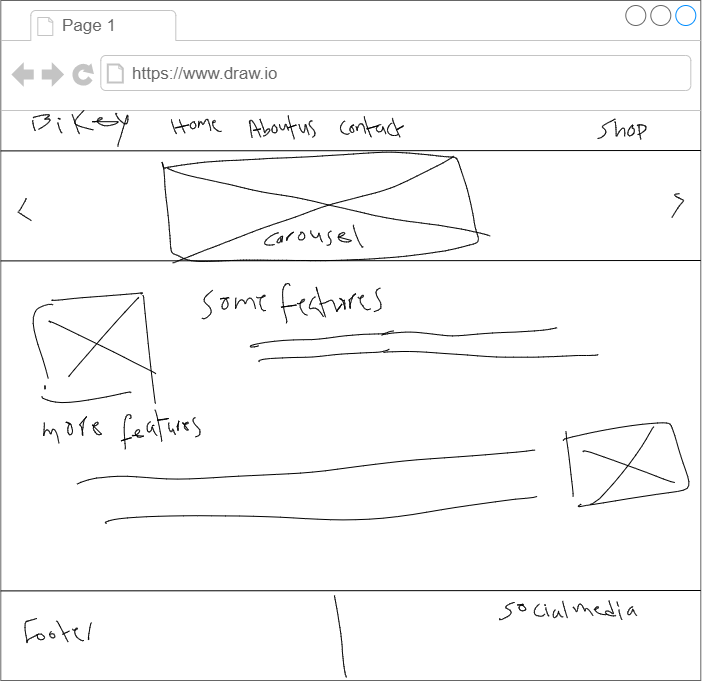 Page 1
https://www.draw.io
BiKey Home About us Contact Shop
< >
Carousel
Some features
more features
Footer
Social media